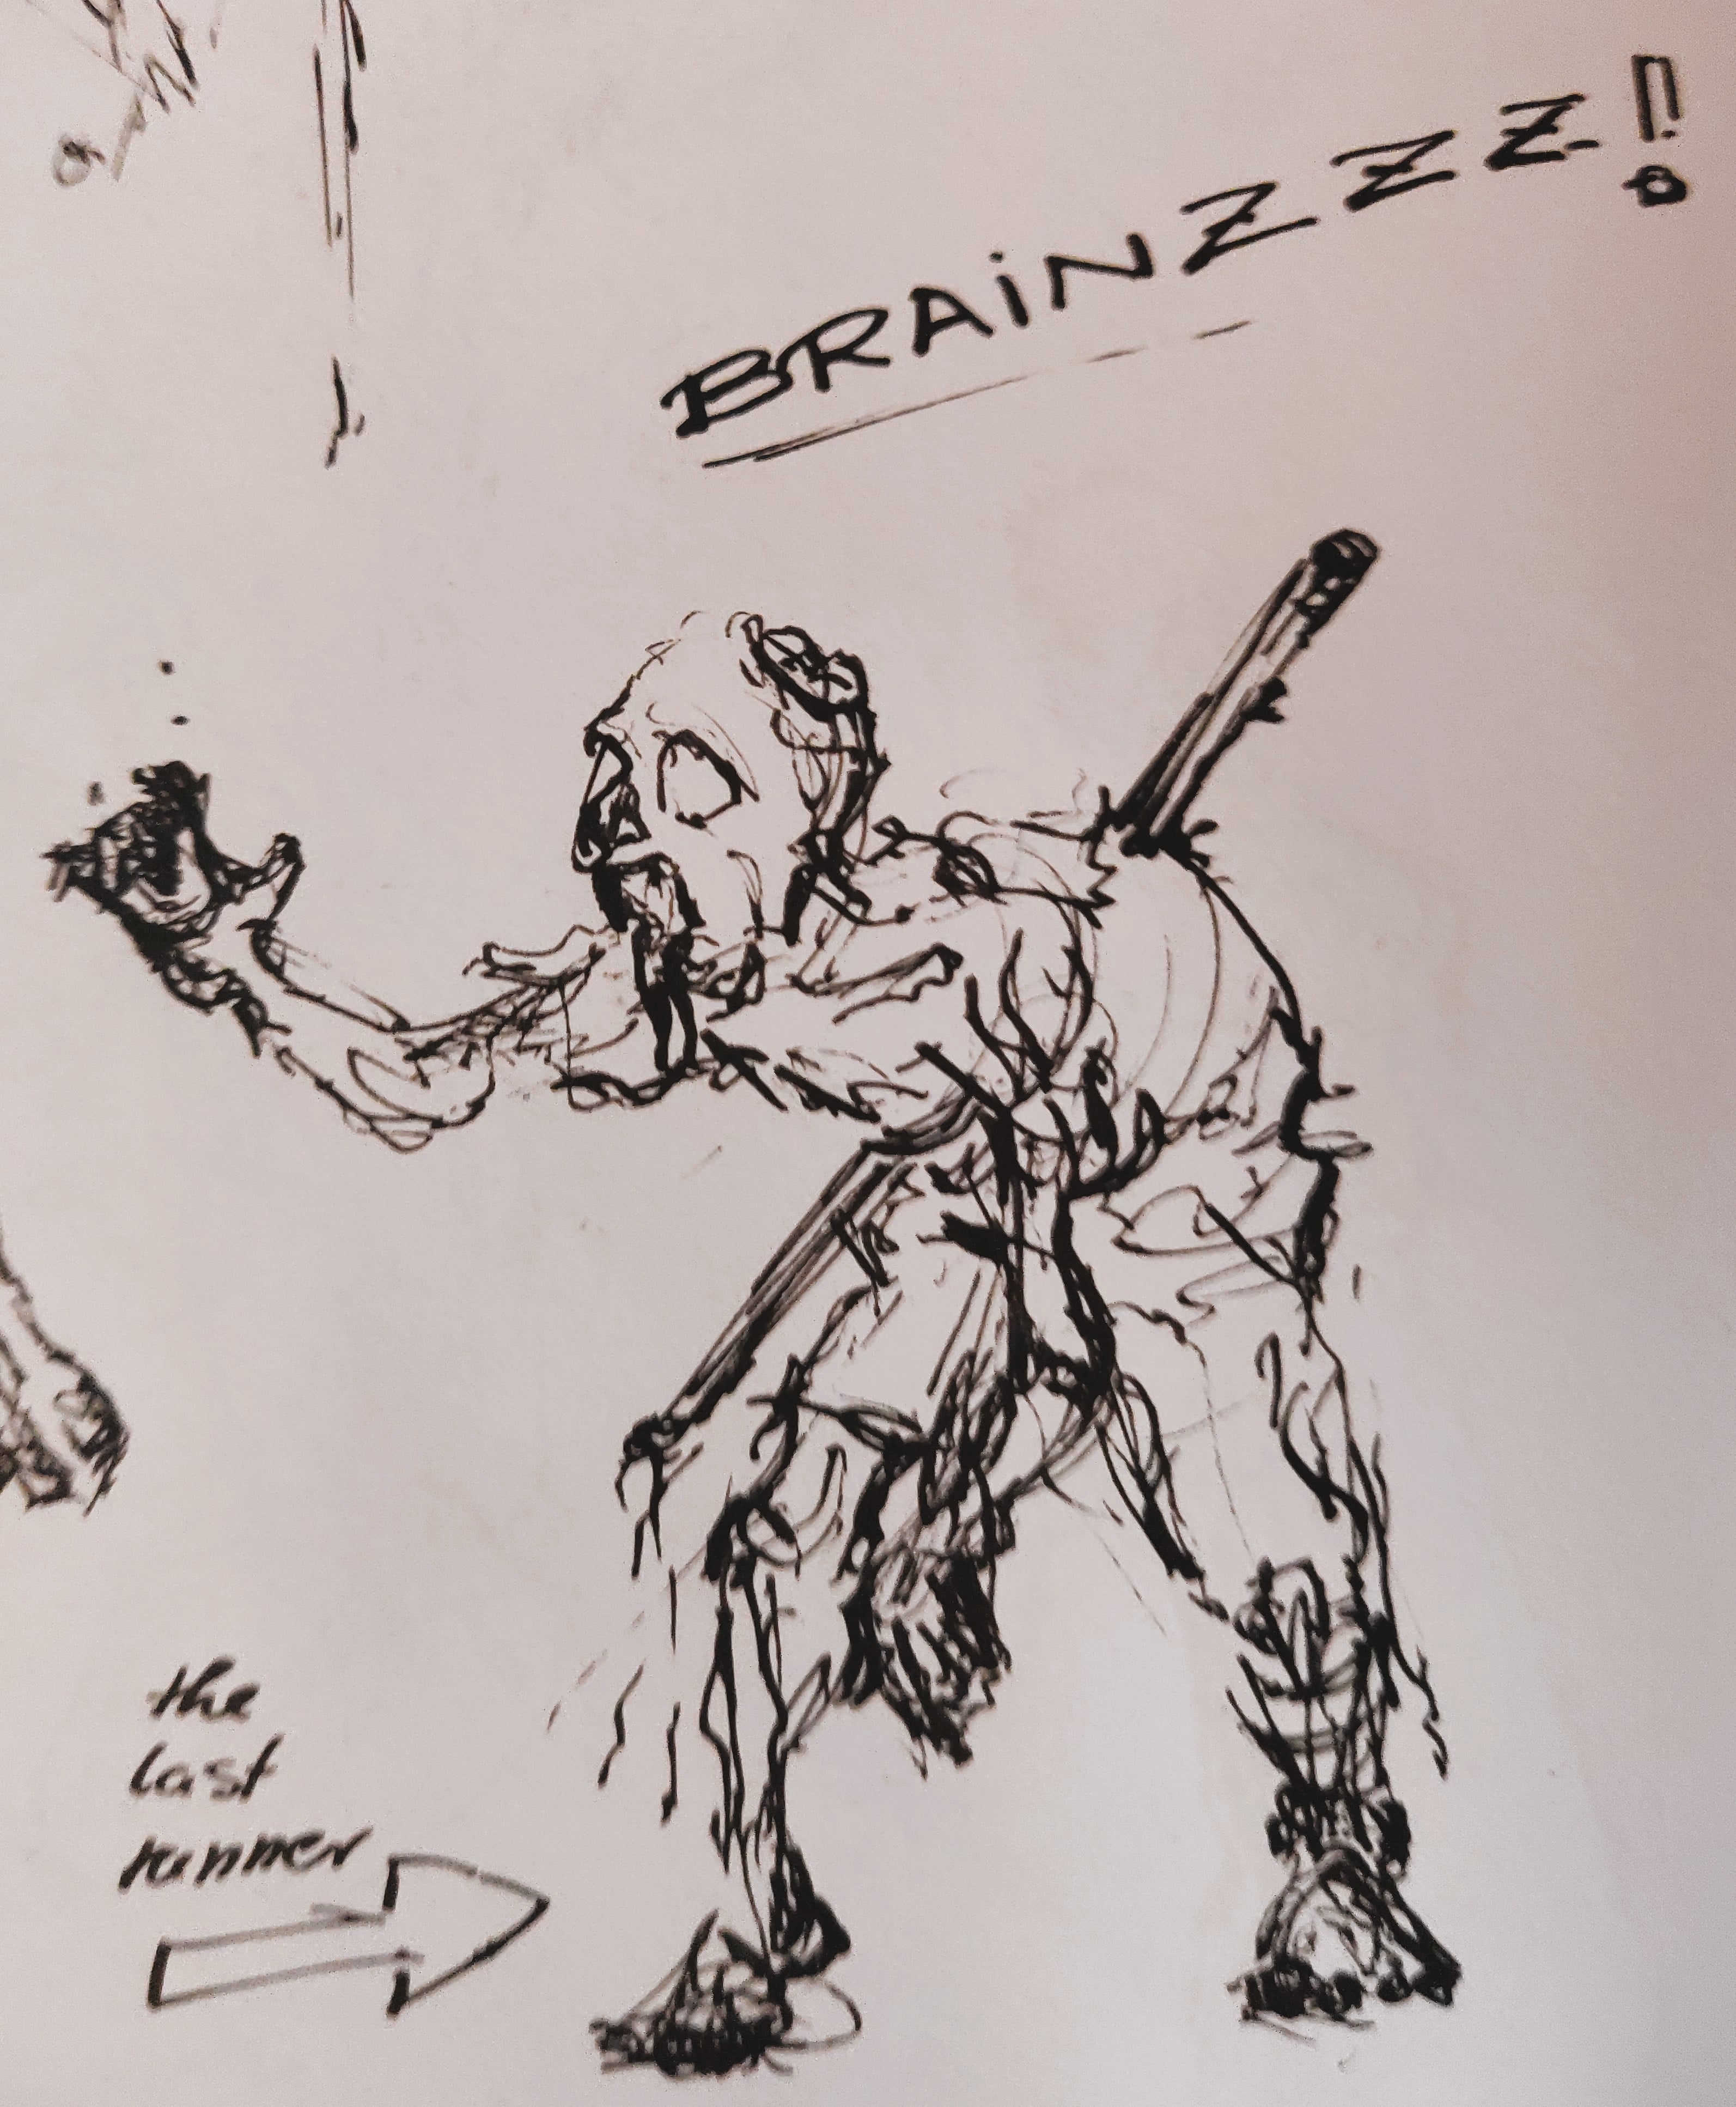 BRAiNZZZ!
the
last
runner